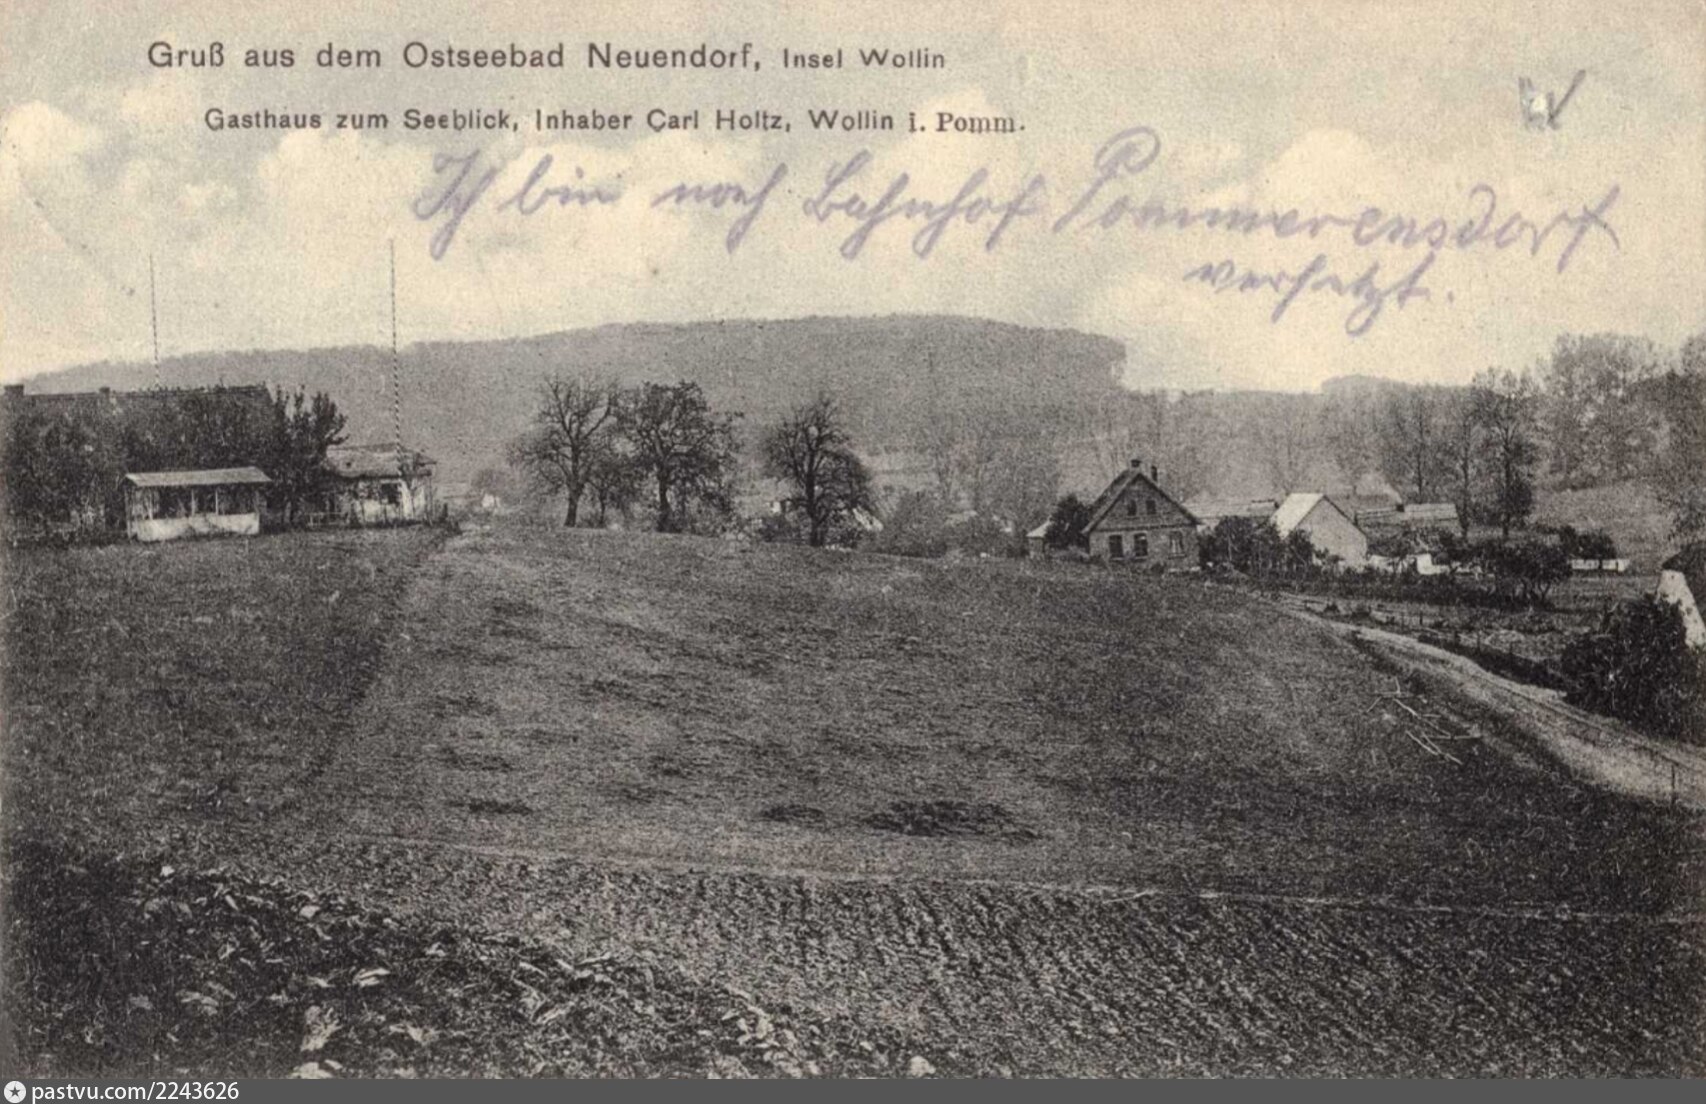 Gruß aus dem Ostseebad Neuendorf, Insel Wollin
Gasthaus zum Seeblick, Inhaber Carl Holtz, Wollin i. Pomm.
Ich bin nach Bahnhof Pommerensdorf
versetzt.
pastvu.com/2243626